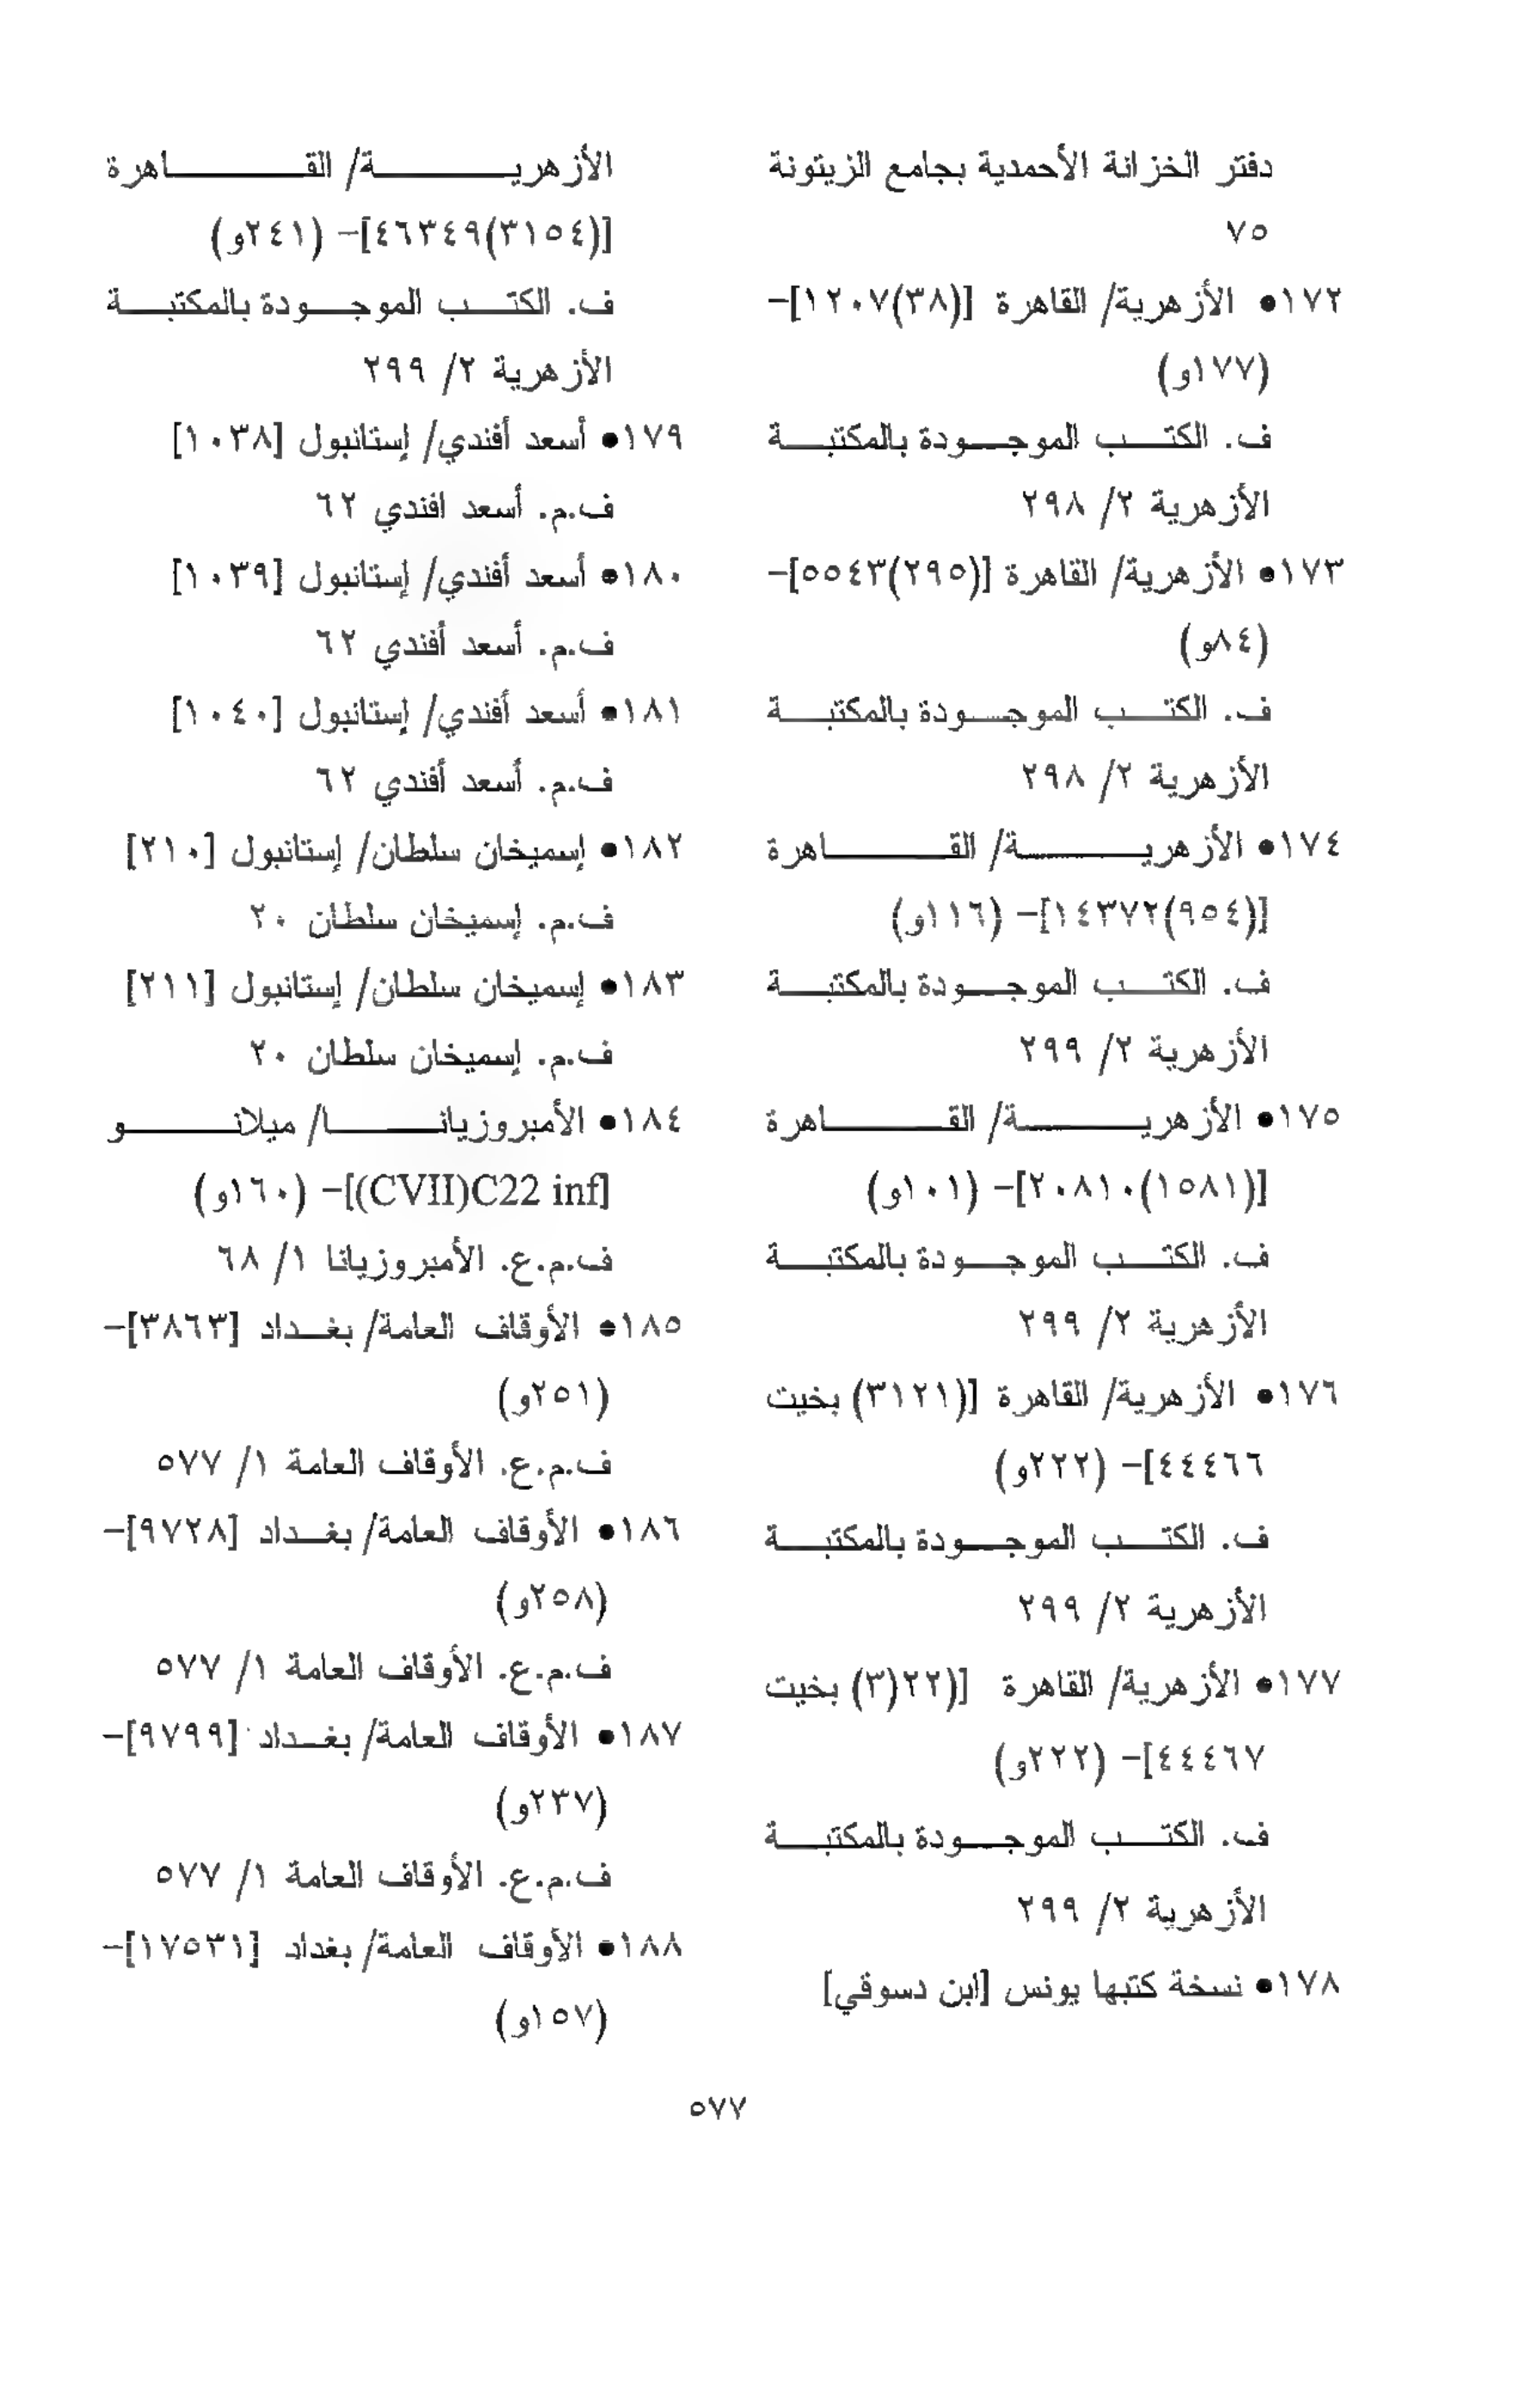 دفتر الخزانة الأحمدية بجامع الزيتونة
٧٥
١٧٢• الأزهرية/ القاهرة [(٣٨)١٢٠٧]-
(١٧٧و)
ف. الكتب الموجودة بالمكتبة
الأزهرية ٢/ ٢٩٨
١٧٣• الأزهرية/ القاهرة [(٢٩٥)٥٥٤٣]-
(٨٤و)
ف. الكتب الموجودة بالمكتبة
الأزهرية ٢/ ٢٩٨
١٧٤• الأزهرية/ القاهرة
[(٩٥٤)١٤٣٧٢]- (١١٦و)
ف. الكتب الموجودة بالمكتبة
الأزهرية ٢/ ٢٩٩
١٧٥• الأزهرية/ القاهرة
[(١٥٨١)٢٠٨١٠]- (١٠١و)
ف. الكتب الموجودة بالمكتبة
الأزهرية ٢/ ٢٩٩
١٧٦• الأزهرية/ القاهرة [(٣١٢١) بخيت
٤٤٤٦٦]- (٢٢٢و)
ف. الكتب الموجودة بالمكتبة
الأزهرية ٢/ ٢٩٩
١٧٧• الأزهرية/ القاهرة [(٢٢(٣) بخيت
٤٤٤٦٧]- (٢٢٢و)
ف. الكتب الموجودة بالمكتبة
الأزهرية ٢/ ٢٩٩
١٧٨• نسخة كتبها يونس [ابن دسوقي]
الأزهرية/ القاهرة
[(٣١٥٤)٤٦٣٤٩]- (٢٤١و)
ف. الكتب الموجودة بالمكتبة
الأزهرية ٢/ ٢٩٩
١٧٩• أسعد أفندي/ إستانبول [١٠٣٨]
ف.م. أسعد افندي ٦٢
١٨٠• أسعد أفندي/ إستانبول [١٠٣٩]
ف.م. أسعد أفندي ٦٢
١٨١• أسعد أفندي/ إستانبول [١٠٤٠]
ف.م. أسعد أفندي ٦٢
١٨٢• إسميخان سلطان/ إستانبول [٢١٠]
ف.م. إسميخان سلطان ٢٠
١٨٣• إسميخان سلطان/ إستانبول [٢١١]
ف.م. إسميخان سلطان ٢٠
١٨٤• الأمبروزيانا/ ميلانو
[(CVII)C22 inf]- (١٦٠و)
ف.م.ع. الأمبروزيانا ١/ ٦٨
١٨٥• الأوقاف العامة/ بغداد [٣٨٦٣]-
(٢٥١و)
ف.م.ع. الأوقاف العامة ١/ ٥٧٧
١٨٦• الأوقاف العامة/ بغداد [٩٧٢٨]-
(٢٥٨و)
ف.م.ع. الأوقاف العامة ١/ ٥٧٧
١٨٧• الأوقاف العامة/ بغداد [٩٧٩٩]-
(٢٣٧و)
ف.م.ع. الأوقاف العامة ١/ ٥٧٧
١٨٨• الأوقاف العامة/ بغداد [١٧٥٣١]-
(١٥٧و)
٥٧٧